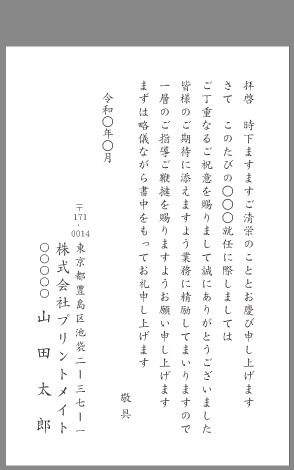 拝啓　時下ますますご清栄のこととお慶び申し上げます
さて　このたびの〇〇〇就任に際しましては
ご丁重なるご祝意を賜りまして誠にありがとうございました
皆様のご期待に添えますよう業務に精励してまいりますので
一層のご指導ご鞭撻を賜りますようお願い申し上げます
まずは略儀ながら書中をもってお礼申し上げます
敬具
令和〇年〇月
〒171-0014
東京都豊島区池袋二ー三七ー一
株式会社プリントメイト
〇〇〇〇〇　山田太郎